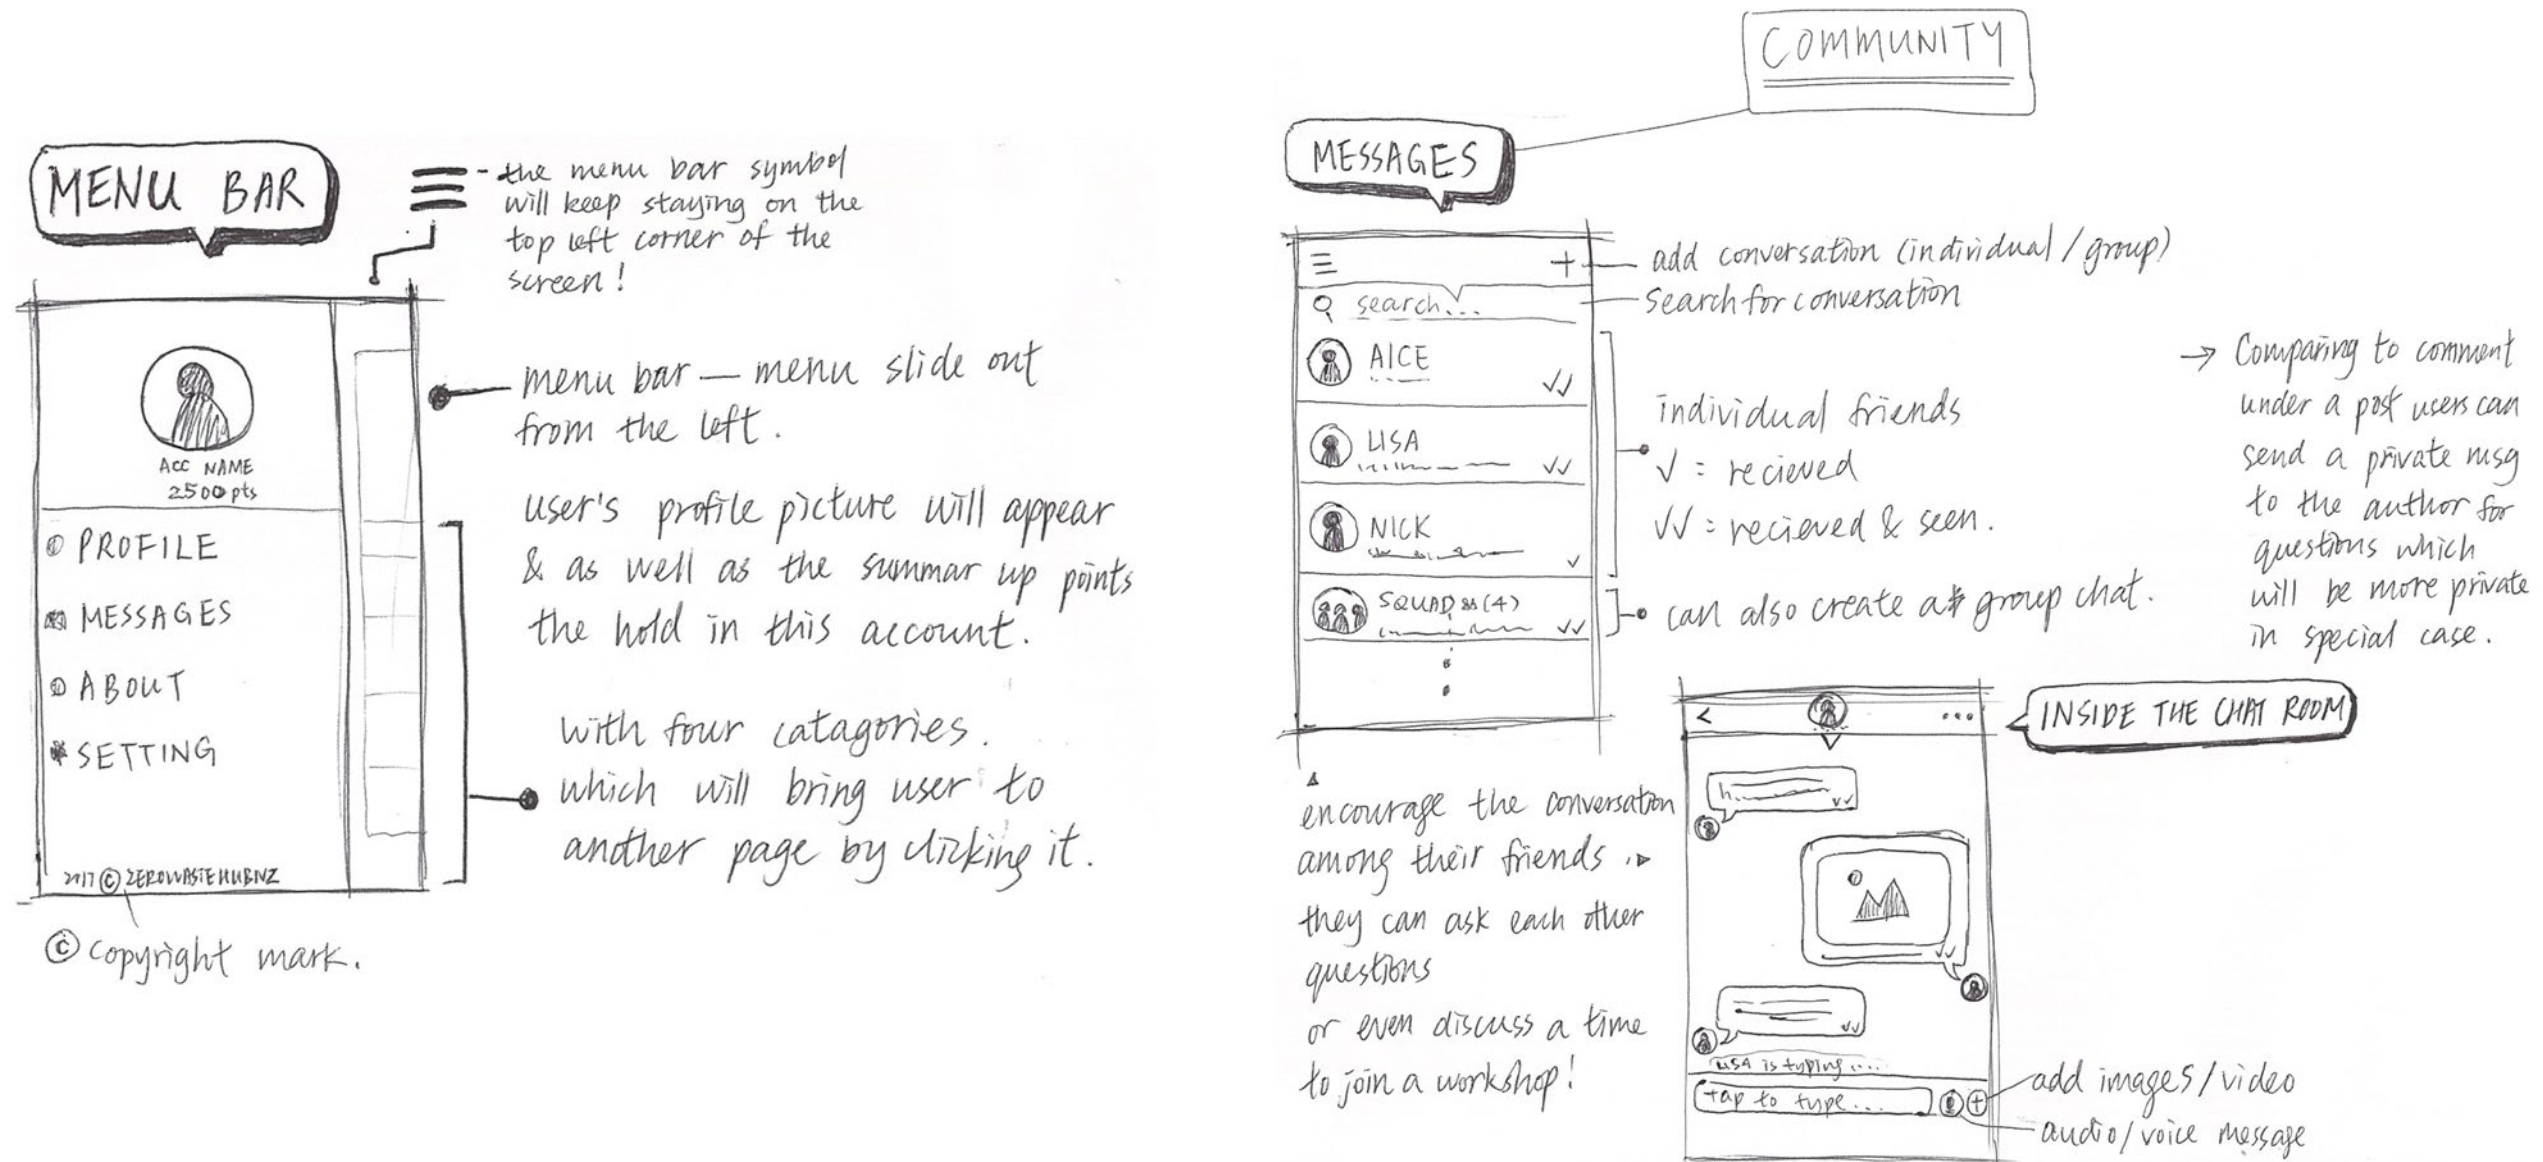 MENU BAR
- the menu bar symbol
will keep staying on the
top left corner of the
screen!
ACC NAME
2500 pts
PROFILE
MESSAGES
ABOUT
SETTING
2017 © ZEROWASTEHUBNZ
© copyright mark.
menu bar — menu slide out
from the left.
user's profile picture will appear
& as well as the summar up points
the hold in this account.
with four catagories.
which will bring user to
another page by clicking it.
COMMUNITY
MESSAGES
+
search...
AICE
LISA
NICK
SQUAD (4)
add conversation (individual / group)
search for conversation
individual friends
✓ = recieved
✓✓ = recieved & seen.
can also create a group chat.
→ Comparing to comment
under a post users can
send a private msg
to the author for
questions which
will be more private
in special case.
encourage the conversation
among their friends
they can ask each other
questions
or even discuss a time
to join a workshop!
INSIDE THE CHAT ROOM
<
...
LISA is typing ....
tap to type...
add images/video
audio/voice message